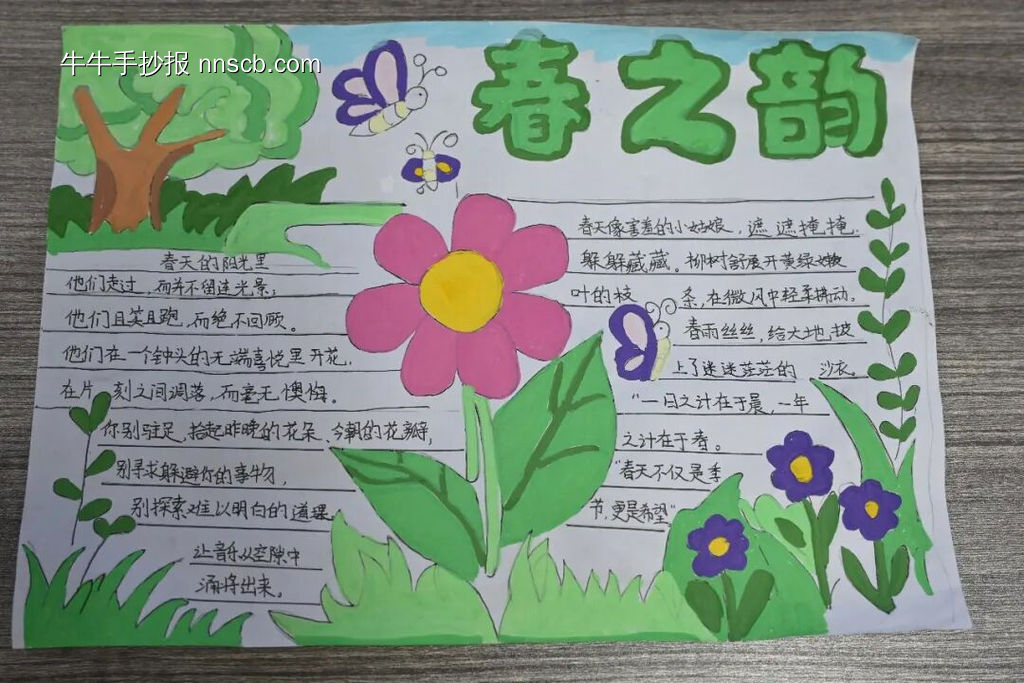 牛牛手抄报 nnscb.com
春之韵
春天的阳光里
他们走过，而并不留连光景；
他们且笑且跑，而绝不回顾。
他们在一个钟头的无端喜悦里开花，
在片刻之间凋落，而毫无懊悔。
你别驻足，拾起昨晚的花朵、今朝的花瓣，
别寻求躲避你的事物，
别探索难以明白的道理，
让音乐从空隙中
涌将出来。
春天像害羞的小姑娘，遮遮掩掩，
躲躲藏藏。柳树舒展开黄绿嫩
叶的枝条，在微风中轻柔拂动，
春雨丝丝，给大地披
上了迷迷茫茫的纱衣。
"一日之计在于晨，一年
之计在于春。
"春天不仅是季
节，更是希望"